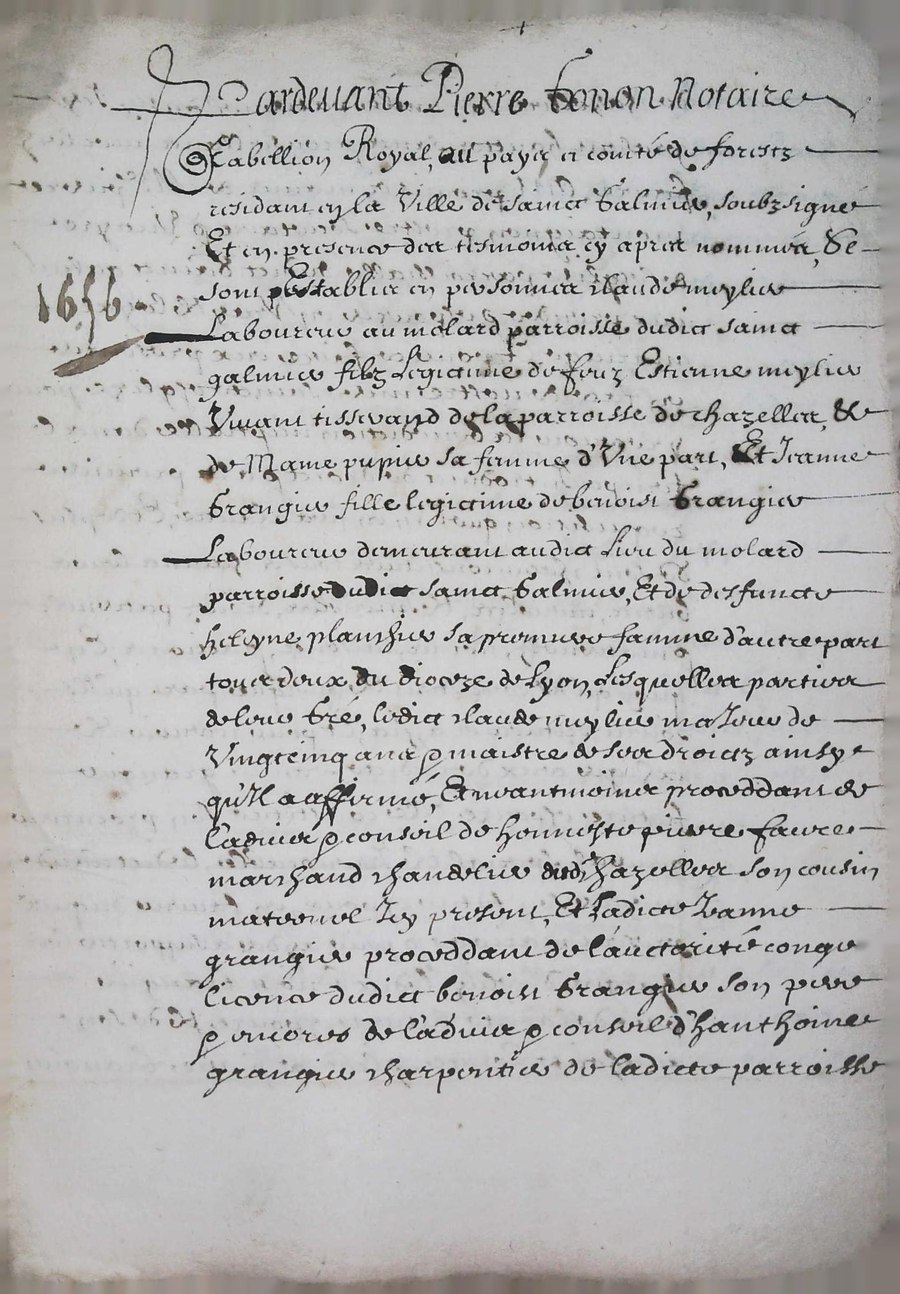 Pardevant Pierre Simon Notaire
Tabellion Royal, au pays et comté de forestz
residant en la Ville de sainct Galmier, soubzsigné
Et en presence des tesmoins cy apres nommés, Se
sont establis en personnes Claude meylier
1656
Laboureur au molard parroisse dudict sainct
galmier filz Legictime de feuz Estienne meylier
Vivant tisserand de la parroisse de chazelles, &
de Marie pupier sa femme d'Vne part, Et Jeanne
Grangier fille legictime de benoist Grangier
Laboureur demeurant audict Lieu du molard
parroisse dudict sainct Galmier, Et de deffuncte
heleyne planchier sa premiere femme d'autre part
tous deux du dioceze de Lyon, Lesquelles parties
de leur Gré, ledict Claude meylier maJeur de
Vingtcinq ans & maistre de ses droictz ainsy
qu'Il a affirmé, Et neantmoins proceddant de
l'advis & conseil de honneste pierre faure
marchand chandelier dud chazelles son cousin
maternel Icy present, Et Ladicte Jeanne
grangier proceddant de l'auctorité conge
licence dudict benoist Grangier son pere
& encores de l'advis & conseil d'hanthoine
grangier charpentier de ladicte parroisse